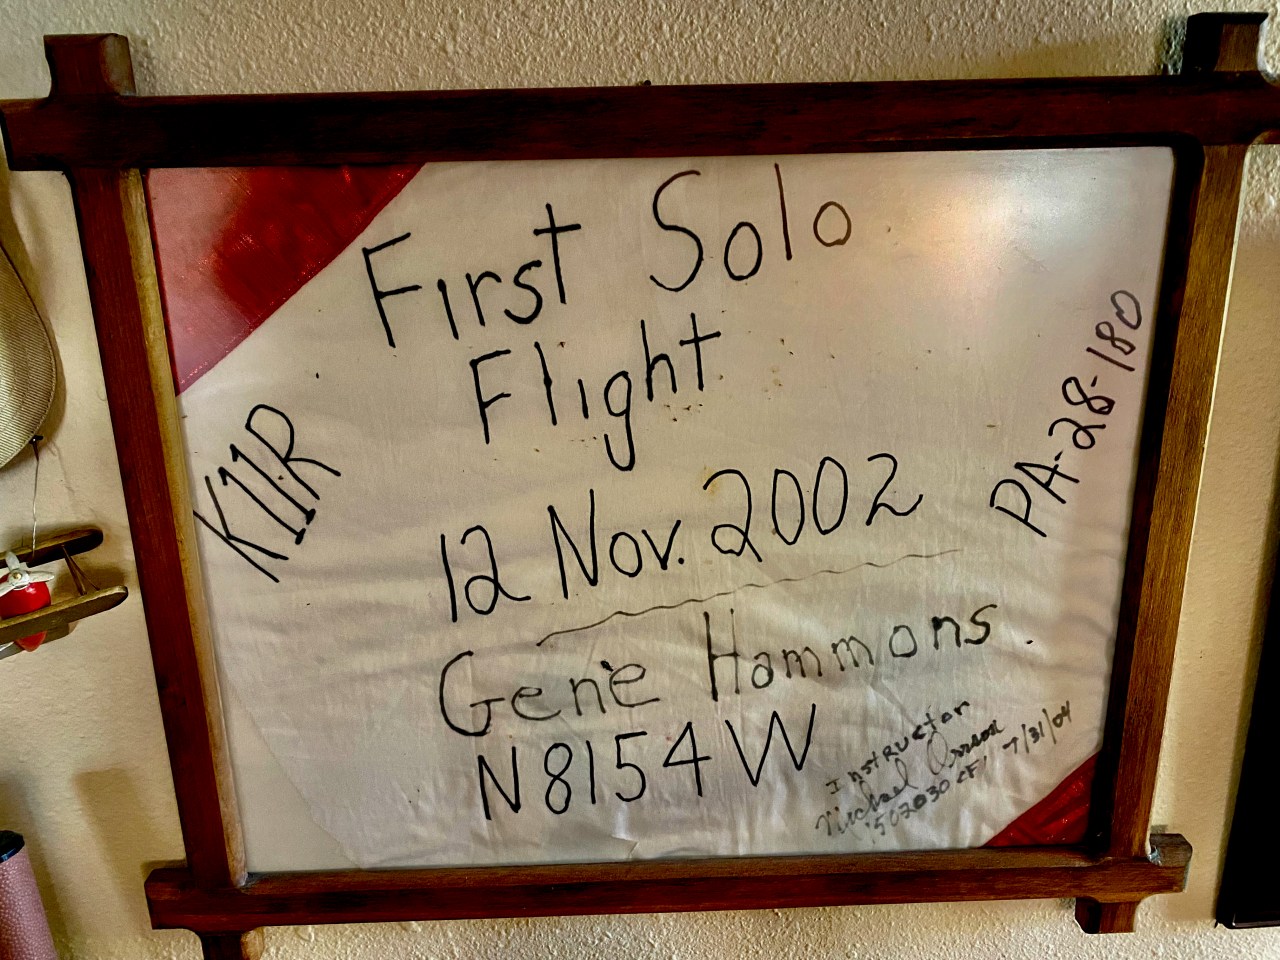 First Solo
Flight
K11R
PA-28-180
12 Nov. 2002
Gene Hammons
N8154W
Instructor
Michael
CFI 7/31/04